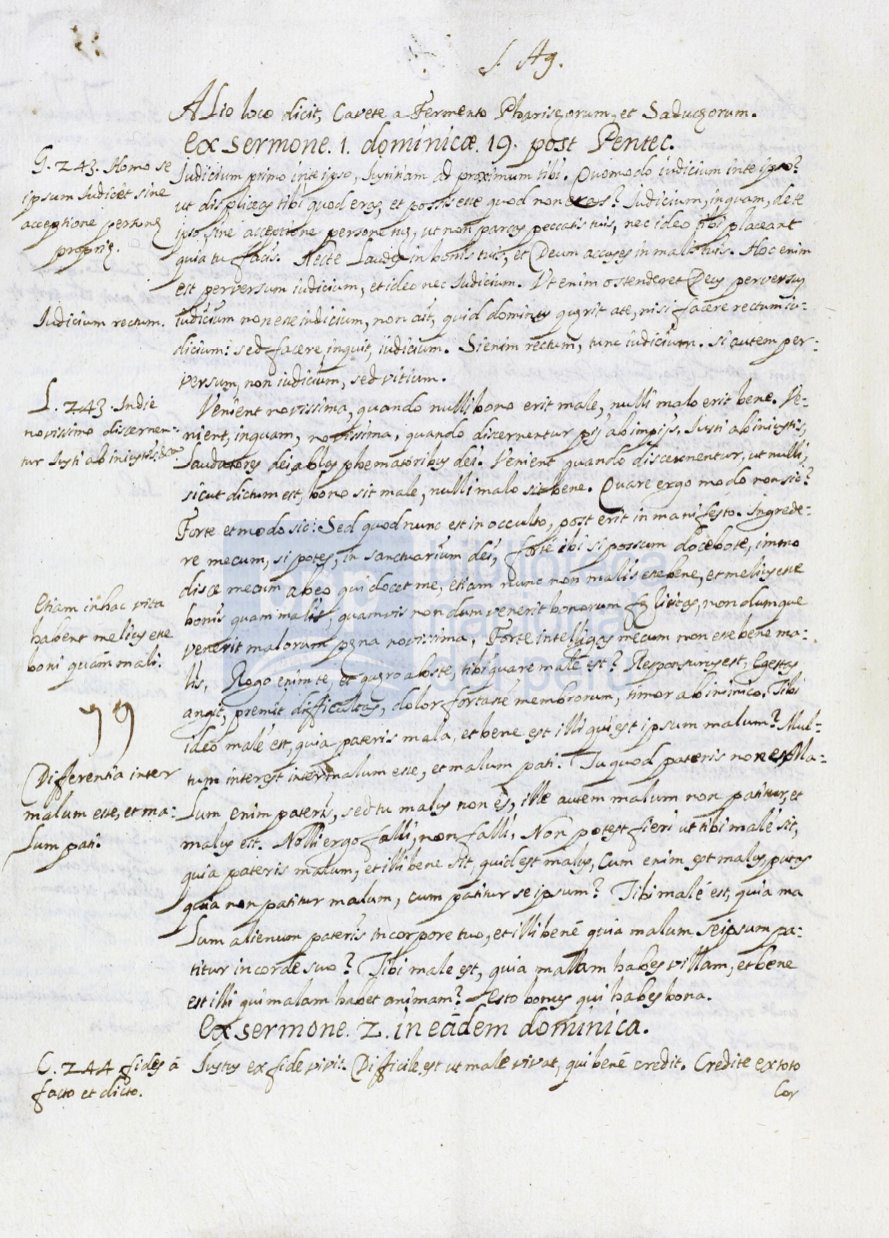 S. Ag.
Alio loco dicit, Cavete a Fermento Pharisęorum, et Saducęorum.
Ex sermone. 1. dominicæ. 19. post Pentec.
G. 243. Homo se
ipsum Iudicet sine
acceptione personę
proprię.
Iudicium primo in te ipso, Iustitiam ad proximum tibi. Quomodo iudicium in te ipso?
ut displiceas tibi quod eras, et possis esse quod non eras? Iudicium, inquam, de te
ipso, sine acceptione personę tuę, ut non parcas peccatis tuis, nec ideo tibi placeant
quia tu facis. Ne te Laudes in bonis tuis, et Deum accuses in malis tuis. Hoc enim
est perversum iudicium, et ideo nec Iudicium. Ut enim ostenderet Deus perversum
Iudicium rectum.
iudicium non esse iudicium, non ait, quid dominus quęrit a te, nisi facere rectum iu-
dicium: sed facere inquit, iudicium. Si enim rectum, tunc iudicium. Si autem per-
versum, non iudicium, sed vitium.
L. 243. In die
novissimo discernen-
tur Iusti ab iniustis
Venient novissima, quando nulli bono erit male, nulli malo erit bene. Ve-
nient, inquam, novissima, quando discernentur pij ab impijs. Iusti ab iniustis,
Laudatores dei a blasphematoribus dei. Venient quando discernentur, ut nulli,
sicut dictum est, bono sit male, nulli malo sit bene. Quare ergo modo non sic?
Forte et modo sic: Sed quod nunc est in occulto, post erit in manifesto. Ingrede-
re mecum, si potes, in sanctuarium dei, forte ibi si possum docebo te, immo
disce mecum ab eo qui docet me, etiam nunc non malis esse bene, et melius esse
Etiam in hac vita
habent melius esse
boni quam mali.
bonis quam malis, quamvis nondum venerit bonorum fęlicitas, nondumque
venerit malorum pęna novissima, Forte intelligas mecum non esse bene ma-
lis. Rogo enim te et quęro abs te, tibi quare male est? Responsurus est, Egestas
angit, premit difficultas, dolor fortasse membrorum, timor ab inimico. Tibi
ideo male est, quia pateris mala, et bene est illi qui est ipsum malum? Mul-
Differentia inter
malum esse, et ma-
lum pati.
tum interest inter malum esse, et malum pati. Tu quod pateris non es. Ma-
Lum enim pateris, sed tu malus non es, ille autem malum non patitur, et
malus est. Nolli ergo falli, non falli. Non potest fieri ut tibi male sit,
quia pateris malum, et illi bene sit, quid est malus, Cum enim est malus putas
quia non patitur malum, cum patitur se ipsum? Tibi male est, quia ma
Lum alienum pateris in corpore tuo, et illi bene quia malum se ipsum pa-
titur in corde suo? Tibi male est, quia mallam habes villam, et bene
est illi qui malam habet animam? Esto bonus qui habes bona.
Ex sermone. 2. in eadem dominica.
C. 244 fides a
facto et dicto.
Iustus ex fide vivit. Difficile est ut male vivat, qui bene credit. Credite ex toto
Cor
biblioteca
nacional
del perú